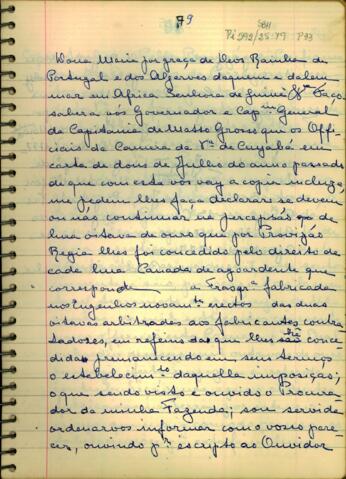 79
SBH
Pi 292/25-79 P73
Dona Maria por graça de Deus, Rainha de
Portugal e dos Algarves daquem e dalem
mar em Africa Senhora de Guiné &ª Faço
saber a vós Governador e Cap.m General
da Capitania de Matto Grosso que os Offi-
ciais da Camera da Vª de Cuyabá em
carta de dous de Julho do anno passado
de que com esta vos vay a copia incluza,
me pedem lhes faça declarar se devem
ou não continuar na percepsão de
huma oitava de ouro que por Provizão
Regia lhes foi concedido pelo direito de
cada huma Canada de agoardente que
corresponde a frasqrª fabricada
nos Engenhos novamte erectos das duas
oitavas arbitradas aos fabricantes contra-
tadores, em refeins das que lhes são conce-
didas permanecendo em seus terenços
o estabelecimto daquella imposição;
o que sendo visto e ouvido o Procura-
dor da minha Fazenda; sou servida
ordenarvos informar com o vosso pare-
cer, ouvindo pr escripto ao Ouvidor